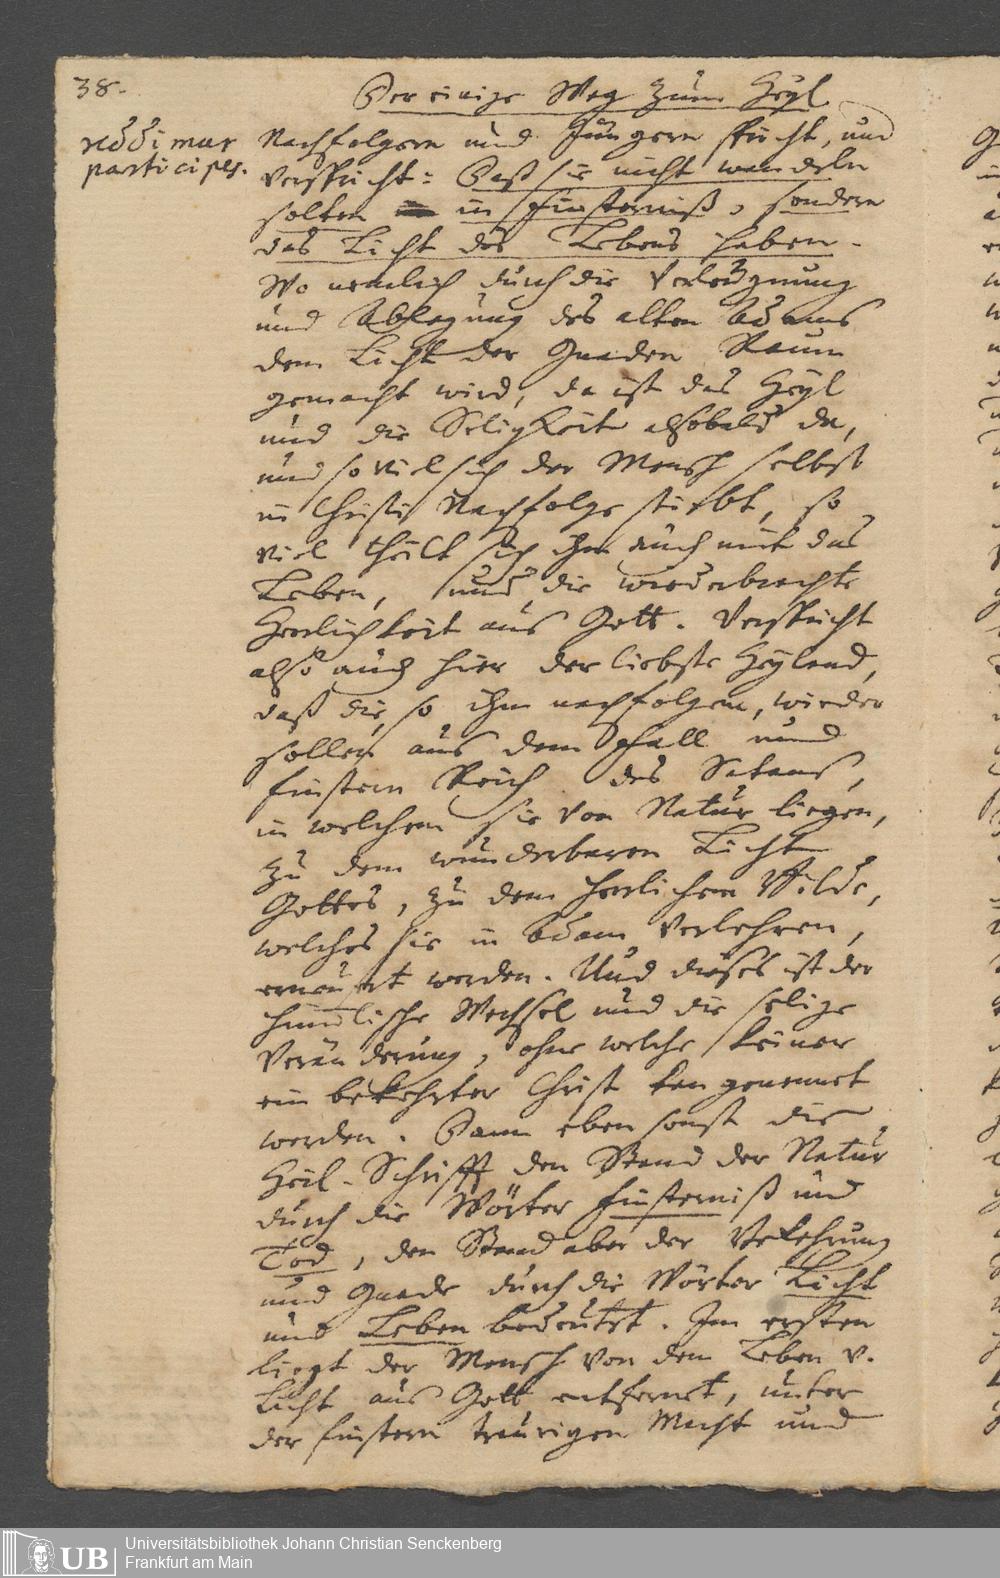 38.
Der einige Weg zum Heyl
reddimur
participes.
Nachfolgern und Jüngern spricht, und
verspricht: Daß sie nicht wandeln
solten in Finsterniß, sondern
das Licht des Lebens haben.
Wo nemlich durch die Verleugnung
und Ablegung des alten Adams
dem Licht der Gnaden Raum
gemacht wird, da ist das Heyl
und die Seligkeit alsobald da,
und so viel sich der Mensch selbst
in Christi Nachfolge stirbt, so
viel theilt sich ihm auch mit das
Leben, und die wiederbrachte
Herrlichkeit aus Gott. Verspricht
also auch hier der liebste Heyland,
daß die, so ihm nachfolgen, wieder
sollen aus dem Fall und
finstern Reich des Satans,
in welchem sie von Natur liegen,
zu dem wunderbaren Licht
Gottes, zu dem herrlichen Bilde,
welches sie in Adam verlohren,
erneuert werden. Und dieses ist der
himlische Wechsel und die selige
Veränderung, ohne welche keiner
ein bekehrter Christ kan genennet
werden. Dann eben sonst die
Heil. Schrifft den Stand der Natur
durch die Wörter Finsterniß und
Tod, den Stand aber der Bekehrung
und Gnade durch die Wörter Licht
und Leben bedeutet. Im ersten
liegt der Mensch von dem Leben v.
Licht aus Gott entfernet, unter
der finstern traurigen Macht und
UB
Universitätsbibliothek Johann Christian Senckenberg
Frankfurt am Main